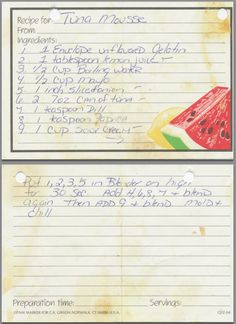 Recipe for: Tuna Mousse
From
Ingredients:
1 1 Envelope unflavored Gelatin
2 1 tablespoon lemon juice
3 1/2 cup Boiling water
4 1/2 cup mayo
5 1 inch slice onion
6 2 7oz can of tuna
7 1 teaspoon Dill
8 1 teaspoon Paprica
9 1 cup Sour Cream
Put 1,2,3,5 in Blender on high
for 30 Sec. Add 4,6,8,7 + blend
again Then ADD 9 + blend Mold +
chill
Preparation time:
Servings: